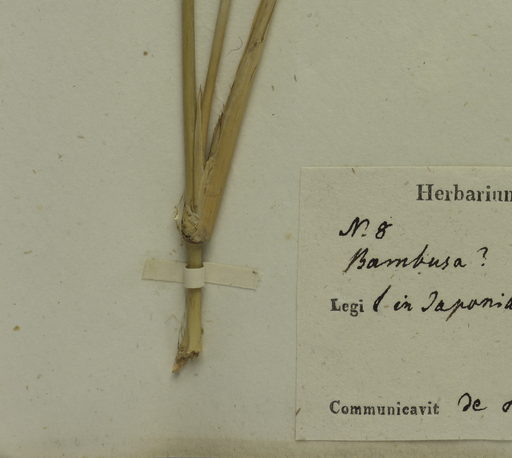 Herbarium
N. 8
Bambusa?
Legi t in Japonia
Communicavit de